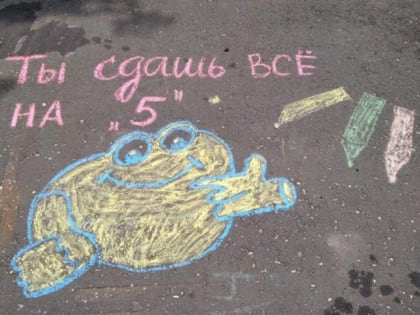 Ты сдашь ВСЁ
НА „5"